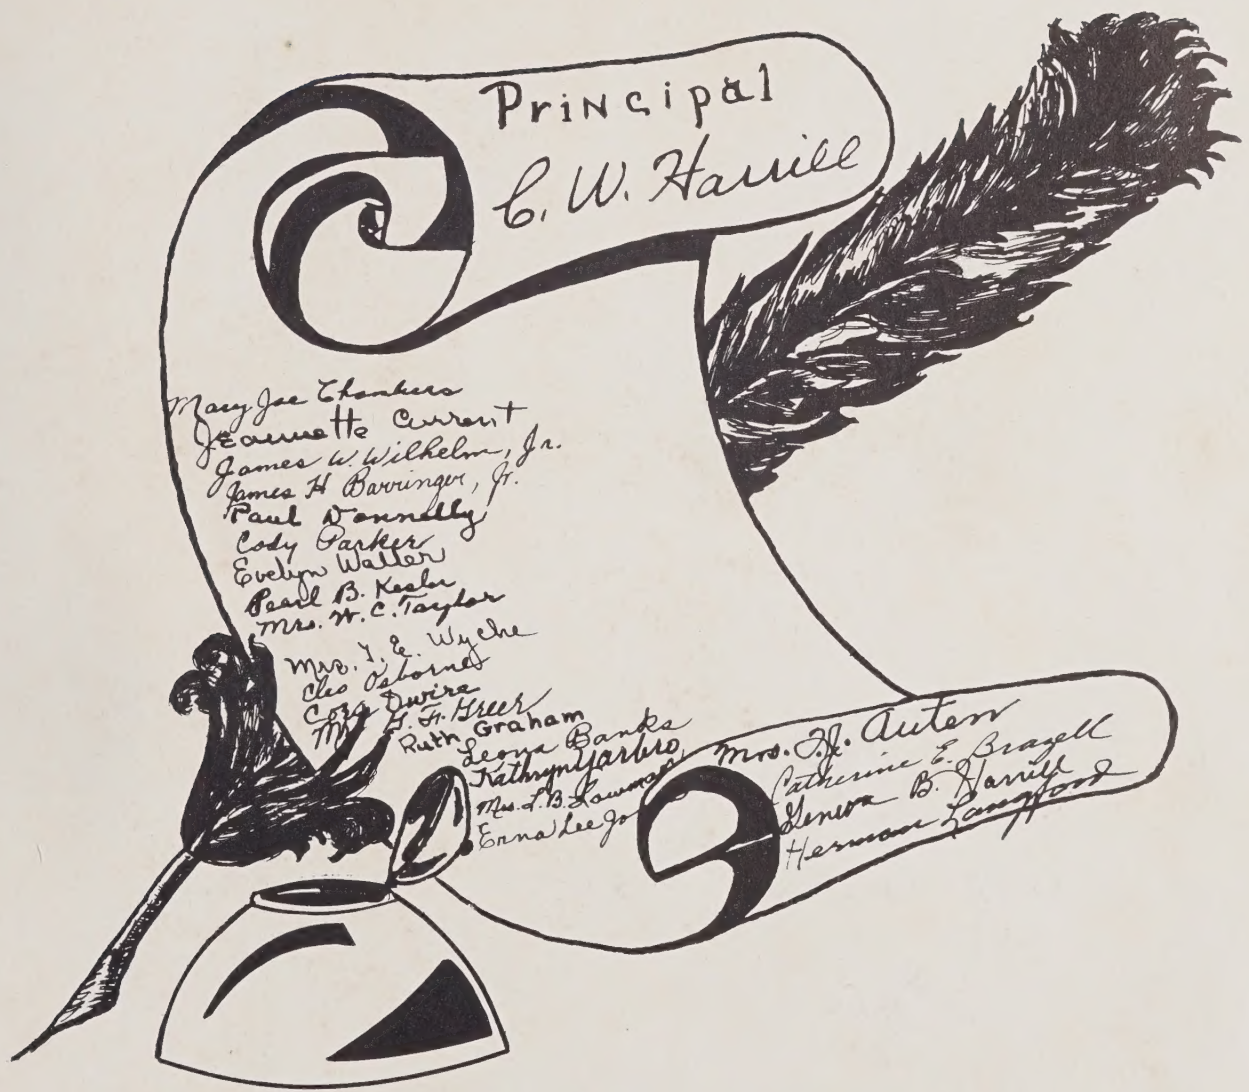 Principal
C. W. Harrill
Mary Joe Chambers
Jeannette Current
James W. Wilhelm, Jr.
James H Barringer, Jr.
Paul Donnelly
Cody Parker
Evelyn Walter
Pearl B. Kesler
Mrs. W. C. Taylor
Mrs. T. E. Wyche
Cleo Osborne
Cora Dwire
G. F. Greer
Ruth Graham
Leona Banks
Kathryn Yarbro
Mrs. L. B. Lawman
Erna Lee Jo
Mrs. F. J. Auten
Catherine E. Brazell
Geneva B. Harrill
Herman Langford